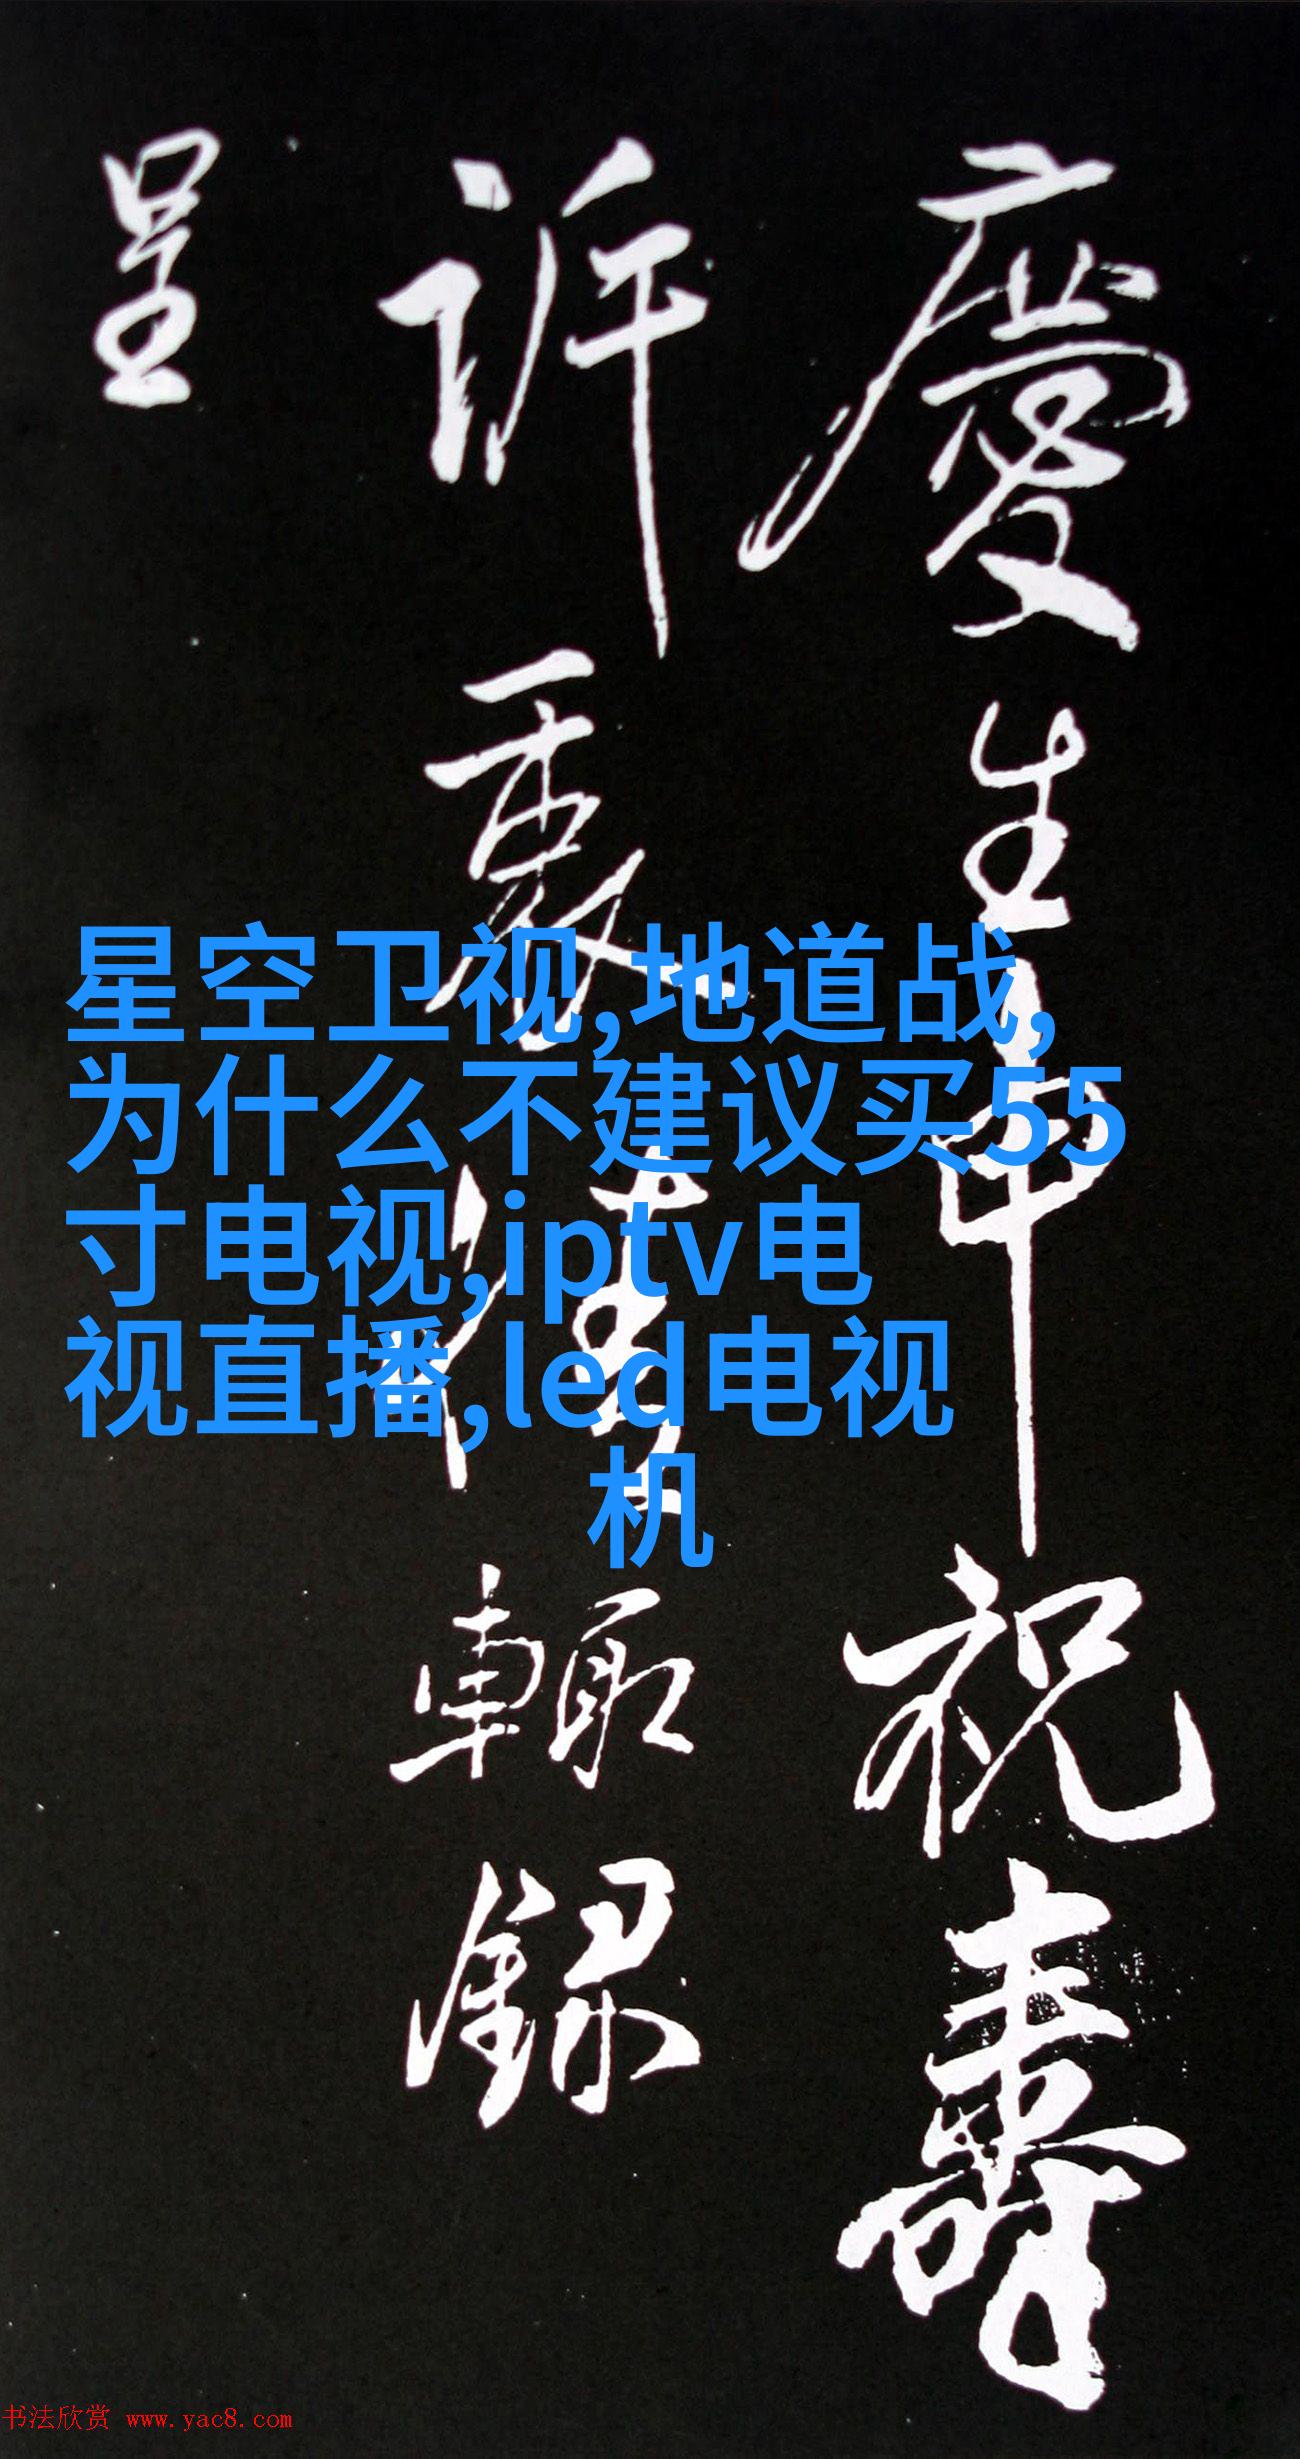 慶生申祝壽
訴衷情輒録
呈
星空卫视,地道战,
为什么不建议买55
寸电视,iptv电
视直播,led电视
机
书法欣赏 www.yac8.com